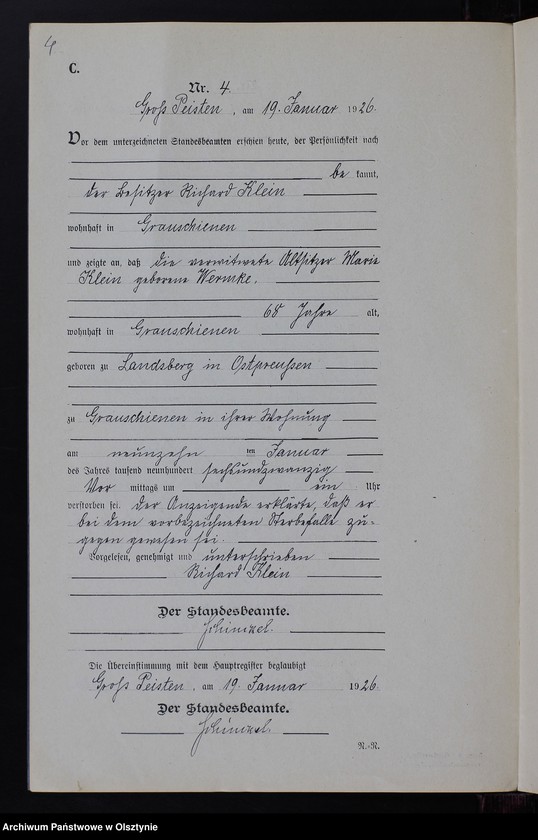 4
C.
Nr. 4.
Groß Peisten, am 19. Januar 1926.
Vor dem unterzeichneten Standesbeamten erschien heute, der Persönlichkeit nach
be kannt,
der Besitzer Richard Klein
wohnhaft in Grauschienen
und zeigte an, daß die verwitwete Altsitzer Marie
Klein geborene Wermke.
68 Jahre alt,
wohnhaft in Grauschienen
geboren zu Landsberg in Ostpreußen
zu Grauschienen in ihrer Wohnung
am neunzehn ten Januar
des Jahres tausend neunhundert sechsundzwanzig
Vor mittags um ein Uhr
verstorben sei. Der Anzeigende erklärte, daß er
bei dem vorbezeichneten Sterbefalle zu-
gegen gewesen sei.
Vorgelesen, genehmigt und unterschrieben
Richard Klein
Der Standesbeamte.
Schinkel.
Die Übereinstimmung mit dem Hauptregister beglaubigt
Groß Peisten, am 19. Januar 1926.
Der Standesbeamte.
Schinkel.
N.-R.
Archiwum Państwowe w Olsztynie